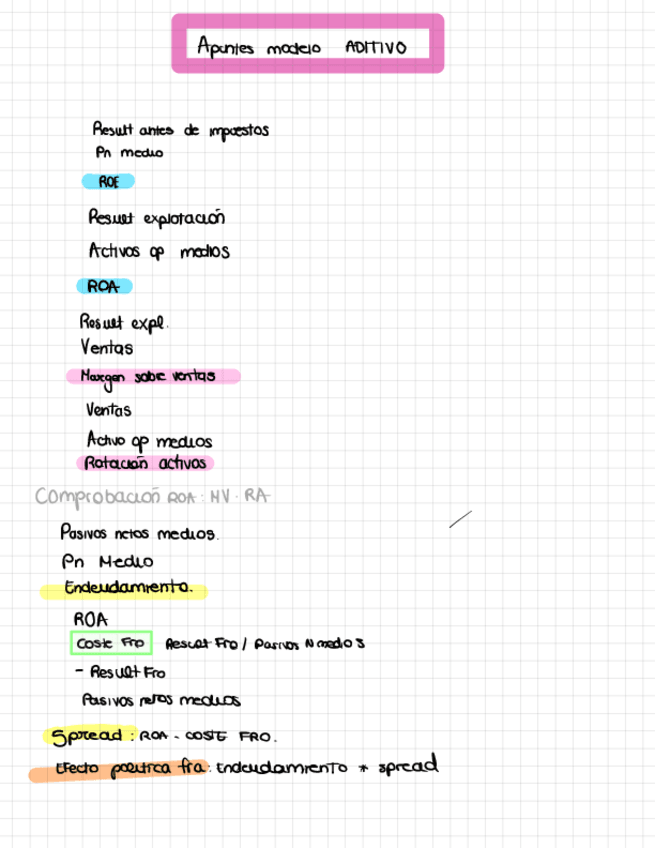 Apuntes modelo ADITIVO
Result antes de impuestos
Pn medio
ROE
Result explotación
Activos op medios
ROA
Result expl.
Ventas
Margen sobre ventas
Ventas
Activo op medios
Rotación activos
Comprobación ROA: MV · RA
Pasivos netos medios.
Pn Medio
Endeudamiento.
ROA
Coste Fro Result Fro / Pasivos N medios
- Result Fro
Pasivos netos medios
Spread: ROA - COSTE FRO.
Efecto política fra: Endeudamiento * spread